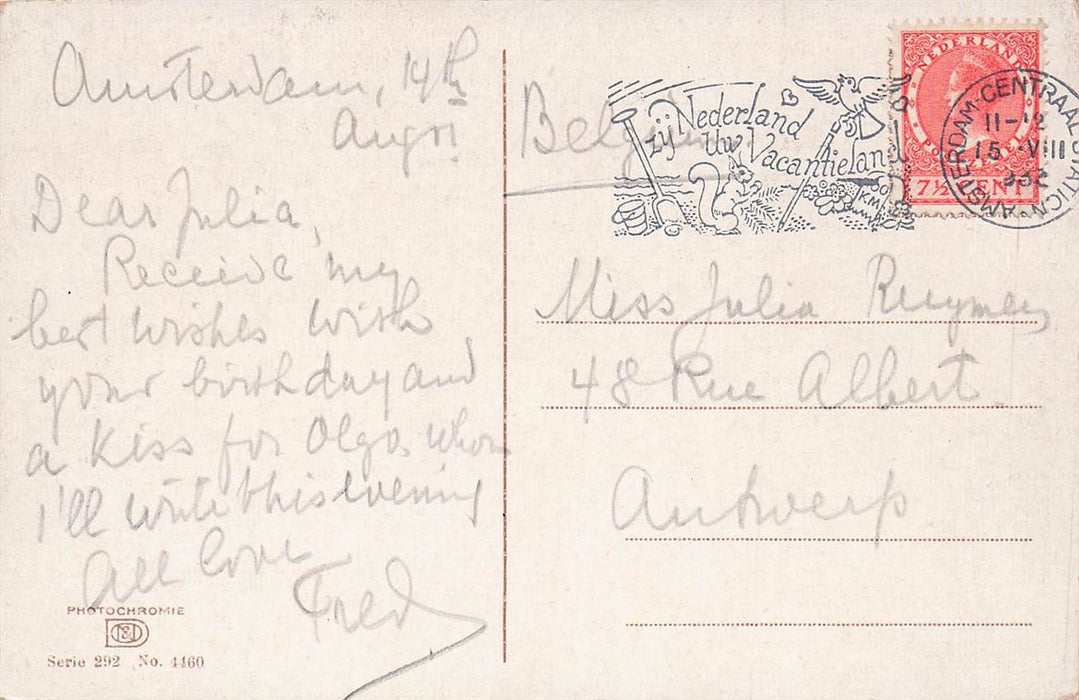 Amsterdam, 14th
Dear Julia,
Receive my
best wishes with
your birthday and
a kiss for Olga whom
I'll write this evening
All love
Fred
PHOTOCHROMIE
Serie 292 No. 4460
Belgium
Nederland
zij Uw Vacantieland
KM
NEDERLAND
7½ CENT
AMSTERDAM-CENTRAAL STATION
11-12
15 VIII
Miss Julia
48 Rue Albert.
Antwerp